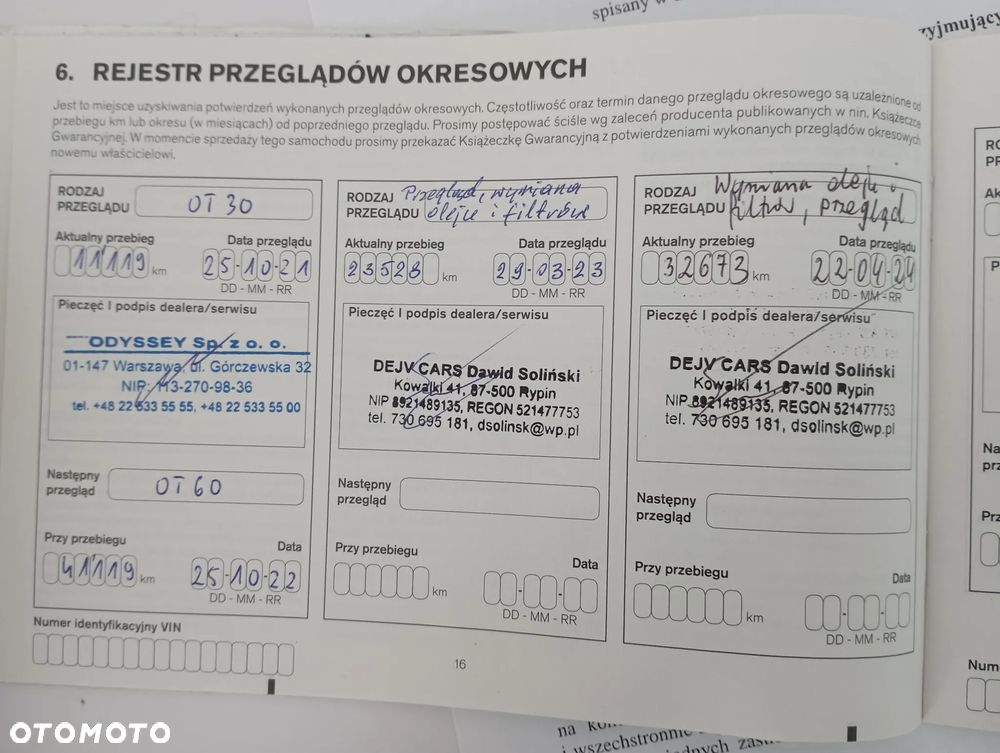 spisany w
zyjmujący
6. REJESTR PRZEGLĄDÓW OKRESOWYCH
Jest to miejsce uzyskiwania potwierdzeń wykonanych przeglądów okresowych. Częstotliwość oraz termin danego przeglądu okresowego są uzależnione od
przebiegu km lub okresu (w miesiącach) od poprzedniego przeglądu. Prosimy postępować ściśle wg zaleceń producenta publikowanych w nin. Książeczce
Gwarancyjnej. W momencie sprzedaży tego samochodu prosimy przekazać Książeczkę Gwarancyjną z potwierdzeniami wykonanych przeglądów okresowych
nowemu właścicielowi.
RODZAJ
PRZEGLĄDU OT 30
Aktualny przebieg Data przeglądu
11119 km 25-10-21
DD - MM - RR
Pieczęć I podpis dealera/serwisu
ODYSSEY Sp. z o. o.
01-147 Warszawa, ul. Górczewska 32
NIP: 113-270-98-36
tel. +48 22 533 55 55, +48 22 533 55 00
Następny
przegląd OT 60
Przy przebiegu Data
41119 km 25-10-22
DD - MM - RR
Numer identyfikacyjny VIN
RODZAJ Przegląd, wymiana
PRZEGLĄDU oleju i filtrów
Aktualny przebieg Data przeglądu
23528 km 29-03-23
DD - MM - RR
Pieczęć I podpis dealera/serwisu
DEJV CARS Dawid Soliński
Kowalki 41, 87-500 Rypin
NIP 8921489135, REGON 521477753
tel. 730 695 181, dsolinsk@wp.pl
Następny
przegląd
Przy przebiegu Data
km
DD - MM - RR
RODZAJ Wymiana oleju i
PRZEGLĄDU filtra, przegląd
Aktualny przebieg Data przeglądu
32673 km 22-04-24
DD - MM - RR
Pieczęć I podpis dealera/serwisu
DEJV CARS Dawid Soliński
Kowalki 41, 87-500 Rypin
NIP 8921489135, REGON 521477753
tel. 730 695 181, dsolinsk@wp.pl
Następny
przegląd
Przy przebiegu Data
km
DD - MM - RR
16
Num
na
i wszechstronnie
OTOMOTO